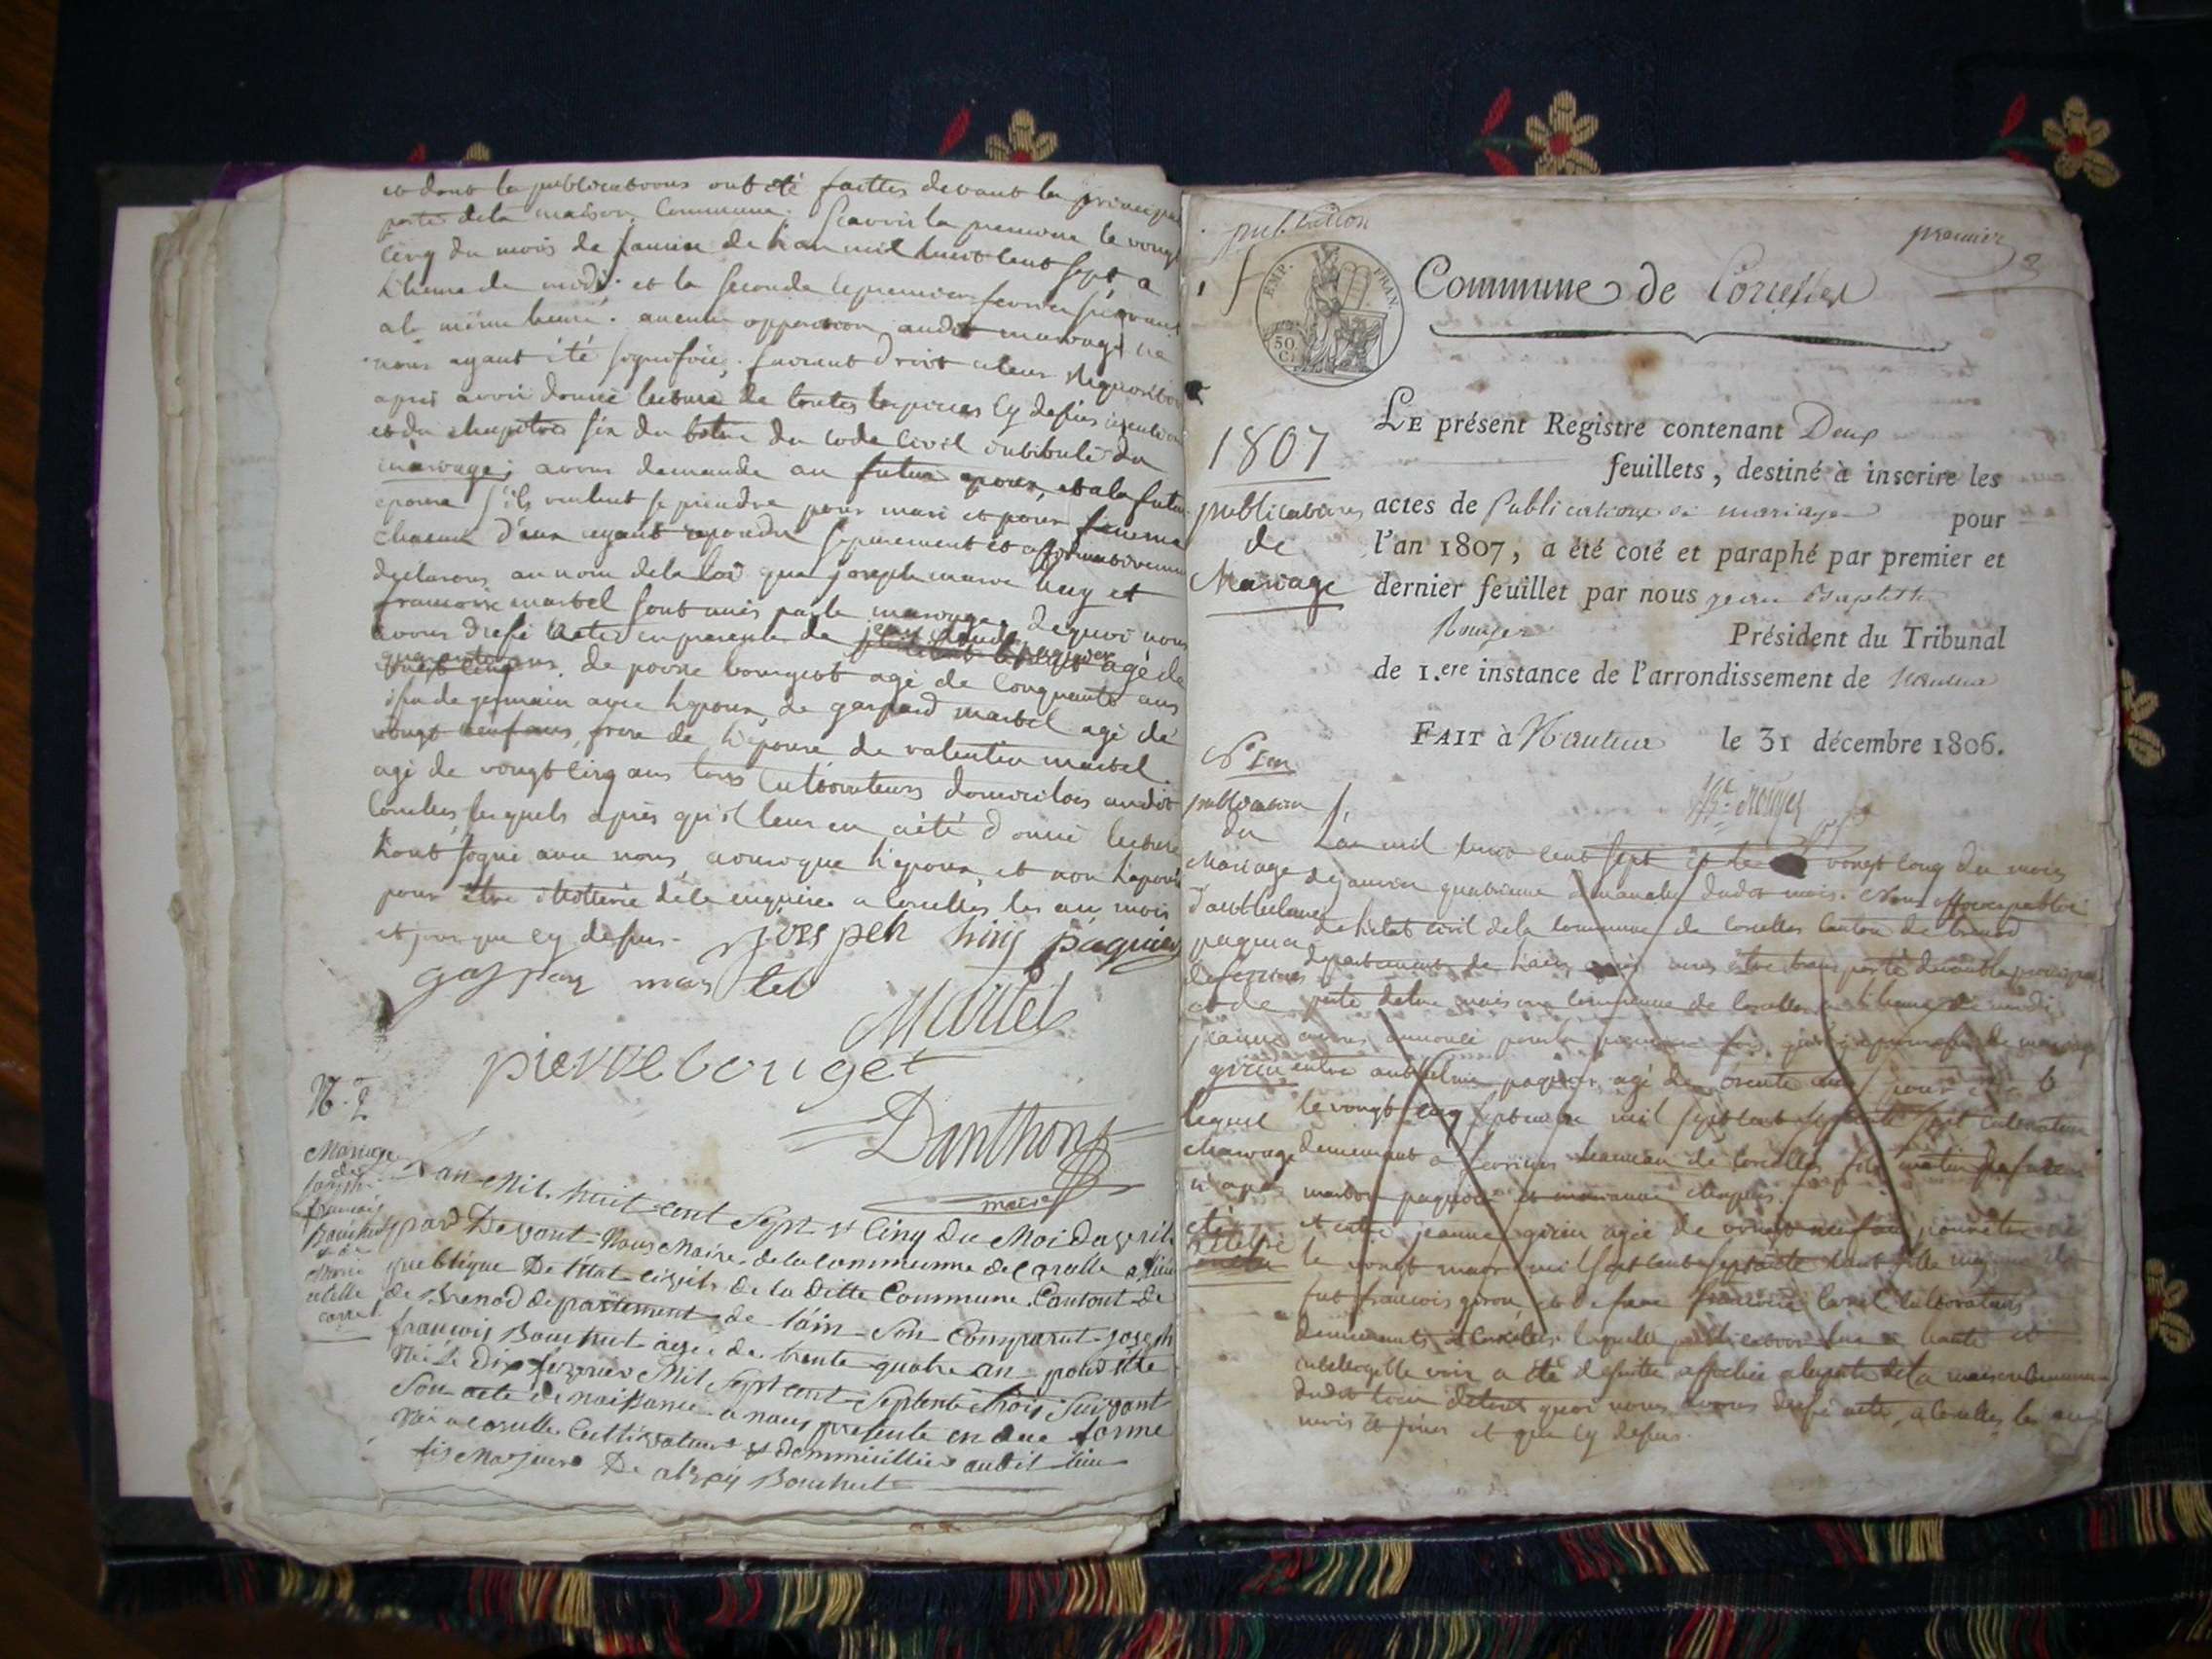 et dont les publications ont été faittes devant la principale
porte de la maison Commune. Scavoir la premiere le vingt
cinq du mois de janvier de l'an mil huit cent sept a
l'heure de midi. et la seconde le premier fevrier suivant
a la même heure. aucune opposition audit mariage ne
nous ayant été signifiée, faisant droit a leur réquisition
apres avoir donné lecture de toutes les pieces cy dessus
et du chapitre six du titre du code Civil intitulé du
mariage; avons demandé au futur epoux, et a la future
epouse s'ils veulent se prendre pour mari et pour femme
chacun d'eux ayant repondu separement et affirmativement
declarons au nom de la loi que joseph marie huy et
francoise martel sont unis par le mariage. de quoi nous
avons dressé acte en presence de jean claude paquier agé de
quarante ans. de pierre bourget agé de cinquante ans
issu de germain avec l'epoux, de gaspard martel agé de
vingt neuf ans, frere de l'epouse de valentin martel
agé de vingt cinq ans tous cultivateurs domiciliés audit
Corcelles, lesquels apres qu'il leur en a été donné lecture
l'ont signé avec nous, ainsi que l'epoux, et non l'epouse
pour être illitterée de le enquise a corcelles les an mois
et jour que cy dessus.
joes peh huij paquier
gaspar martel
Martel
pierre bouget
Danthon
maire
N.° 2
Mariage
de
joseph
francois
Bouchut
et de
carrel
L'an Mil huit cent Sept et Cinq du Moi d'avril
par Devant Nous Maire de la Commune de Corcelle officier
publique De l'état civil de la ditte Commune Canton de
de Brenod departement de l'ain Son Comparut joseph
francois Bouchut agée de trente quatre an pour être
née le Dix fevrier Mil Sept cent Septente trois Suivant
Son acte de naissance a nous presente en due forme
née a corcelle Cultivateur et dommicillier audit lieu
fis Majeure De Bouchut
publication
premier
EMP. FRAN.
50.
C.
Commune de Corcelles
1807
publications
de
Mariage
LE présent Registre contenant Deux
feuillets, destiné à inscrire les
actes de Publications de mariages pour
l'an 1807, a été coté et paraphé par premier et
dernier feuillet par nous jean Baptiste
Rouyer Président du Tribunal
de 1.ere instance de l'arrondissement de Nantua
FAIT à Nantua le 31 décembre 1806.
Rouyer
N.° 1er
publication
du
Mariage
d'anthelme
paquier
de ferrieres
et de
jeanne
girin
lequel
mariage
n'a pas
été
célébré
L'an mil huit cent sept et le vingt cinq du mois
de janvier quatrieme dimanche dudit mois. Nous officier public
de l'etat civil de la commune de corcelles canton de brenod
departement de l'ain, apres nous être transporté devant la principale
porte de la maison commune de corcelles a l'heure de midi
avons annoncé pour la premiere fois qu'il y a promesse de mariage
entre anthelme paquier agé de trente ans pour être né
le vingt cinq septembre mil sept cent septante sept cultivateur
demeurant a ferrieres hameau de corcelles fils
et entre jeanne girin agée de vingt neuf ans pour être née
le vingt mars mil sept cent septante huit fille majeure de
feu francois girin, et de francoise carrel cultivateurs
demeurants a Corcelles. laquelle publication lue a haute et
intelligible voix a été de suitte affichée a la porte de la maison commune
dudit lieu de tout quoi nous avons dressé acte, a Corcelles les an
mois et jour et que cy dessus.